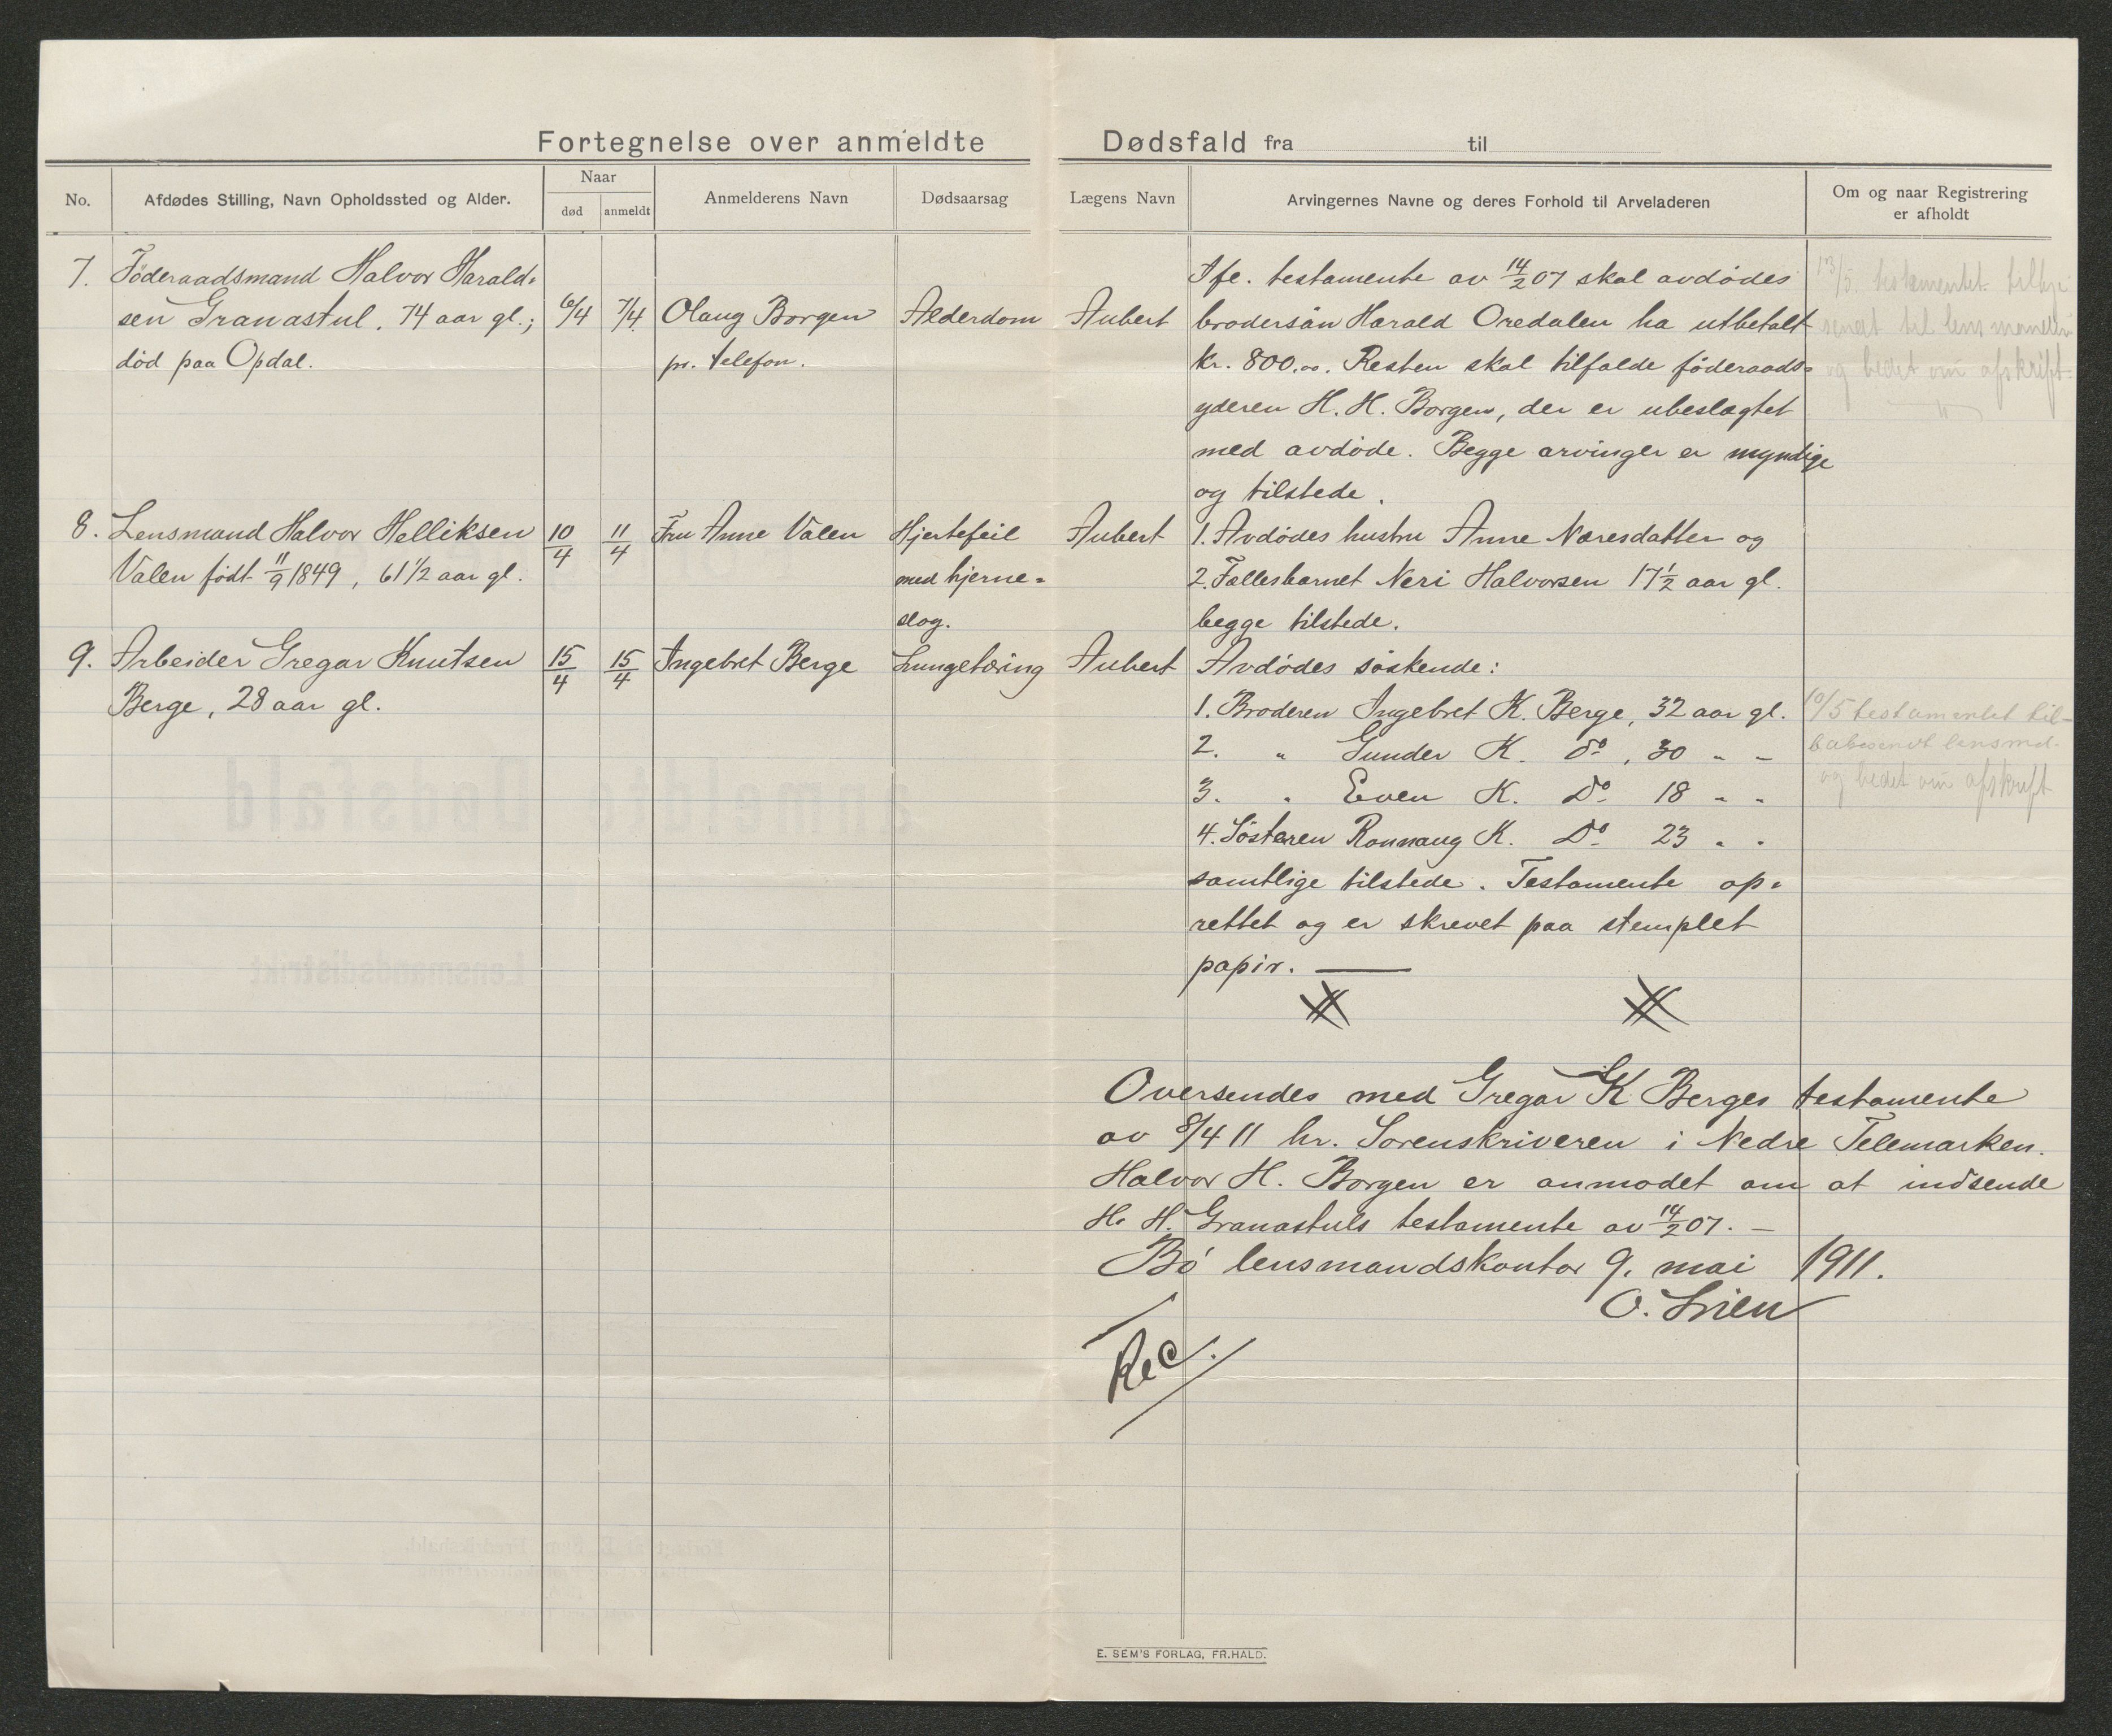 Fortegnelse over anmeldte Dødsfald fra til
No.
Afdødes Stilling, Navn Opholdssted og Alder.
Naar
død
anmeldt
Anmelderens Navn
Dødsaarsag
Lægens Navn
Arvingernes Navne og deres Forhold til Arveladeren
Om og naar Registrering
er afholdt
7. Föderaadsmand Halvor Harald-
sen Granastul, 74 aar gl.; 6/4 7/4 Olaug Borgen Alderdom Aubert
död paa Opdal. pr. telefon.
Ifl. testamente av 14/2 07 skal avdödes
brodersön Harald Oredalen ha utbetalt
kr. 800.00. Resten skal tilfalde föderaads-
yderen H. H. Borgen, der er ubeslægtet
med avdöde. Begge arvinger er myndige
og tilstede.
13/5. testamentet tilbage
sendt til lensmanden
og bedet om afskrift
8. Lensmand Halvor Helliksen 10/4 11/4 Fru Anne Valen Hjertefeil Aubert
Valen födt 11/9 1849, 61 1/2 aar gl. med hjerne-
slag.
1. Avdödes hustru Anne Næresdatter og
2. Fællesbarnet Neri Halvorsen 17 1/2 aar gl.
begge tilstede.
9. Arbeider Gregar Knutsen 15/4 15/4 Ingebret Berge Lungetæring Aubert
Berge, 28 aar gl.
Avdödes söskende:
1. Broderen Ingebret K. Berge, 32 aar gl.
2. " Gunder K. do, 30 " "
3. " Even K. Do 18 " "
4. Sösteren Ronnaug K. Do 23 " "
samtlige tilstede. Testamente op-
rettet og er skrevet paa stemplet
papir.
10/5 testamentet til-
bagesendt lensmd.
og bedet om afskrift
Oversendes med Gregar K Berges testamente
av 8/4 11 hr. Sorenskriveren i Nedre Telemarken.
Halvor H. Borgen er anmodet om at indsende
H. H. Granastuls testamente av 14/2 07. —
Bö lensmandskontor 9. mai 1911.
O. Lien
Rec.
E. SEM'S FORLAG, FR.HALD.